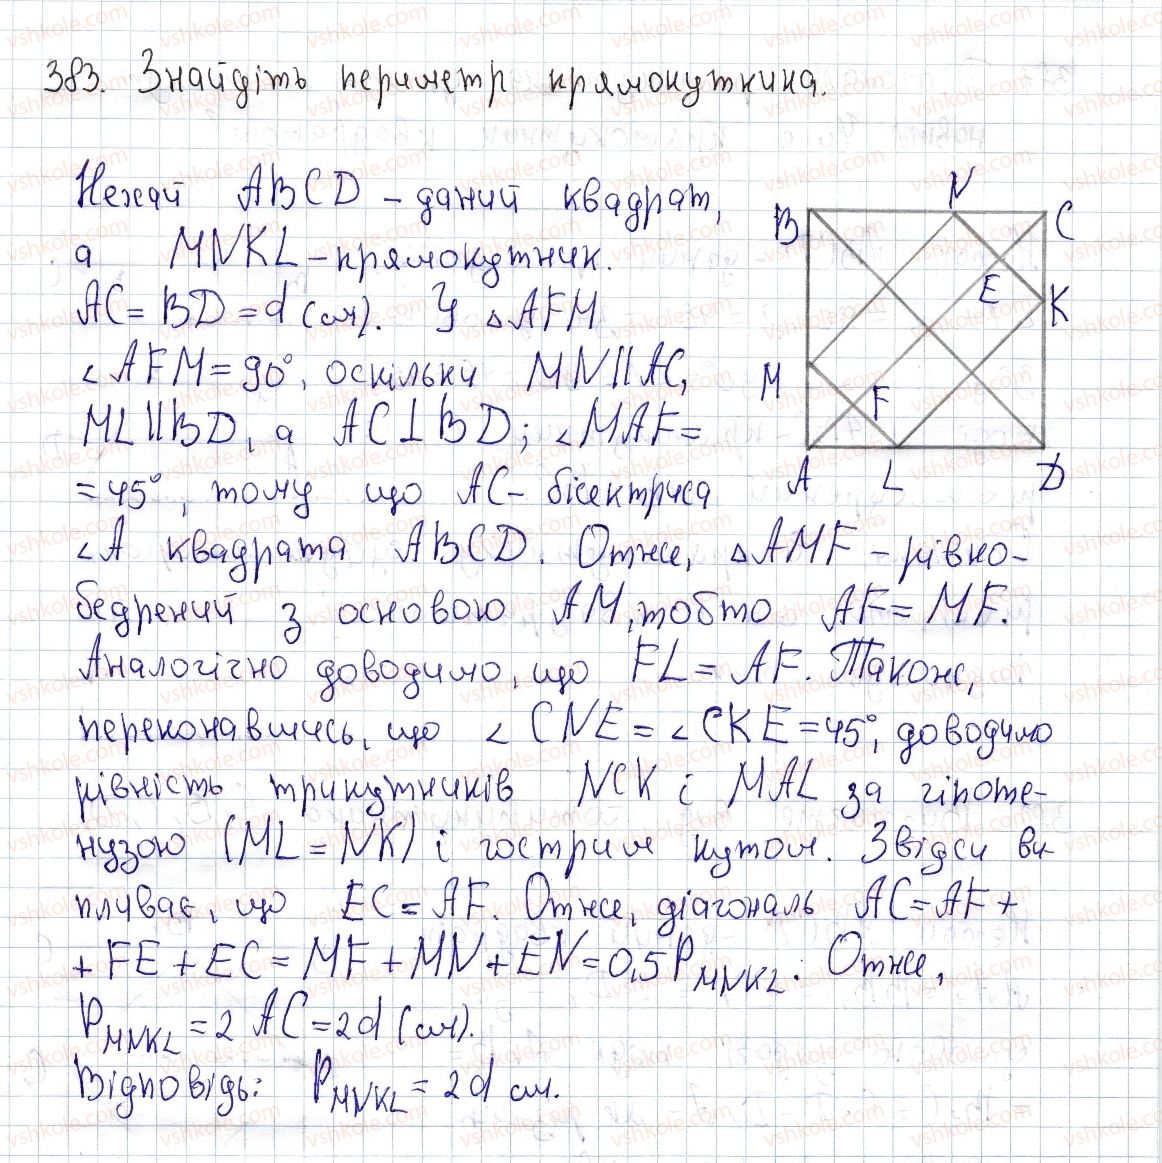 383. Знайдіть периметр крямокуткина.
Нехай ABCD – даний квадрат,
а MNKL – крямокутник.
AC = BD = d (см). У △AFM
∠AFM = 90°, оскільки MN||AC,
ML||BD, а AC⊥BD; ∠MAF =
= 45°, тому що AC – бісектриса
∠A квадрата ABCD. Отже, △AMF – рівно-
бедрений з основою AM, тобто AF = MF.
Аналогічно доводимо, що FL = AF. Також,
переконавшись, що ∠CNE = ∠CKE = 45°, доводимо
рівність трикутників NCK і MAL за гіпоте-
нузою (ML = NK) і гострим кутом. Звідси ви-
пливає, що EC = AF. Отже, діагональ AC = AF +
+ FE + EC = MF + MN + EN = 0,5 P_MNKL. Отже,
P_MNKL = 2 AC = 2d (см).
Відповідь: P_MNKL = 2d см.
B N C
E
K
M
F
A L D